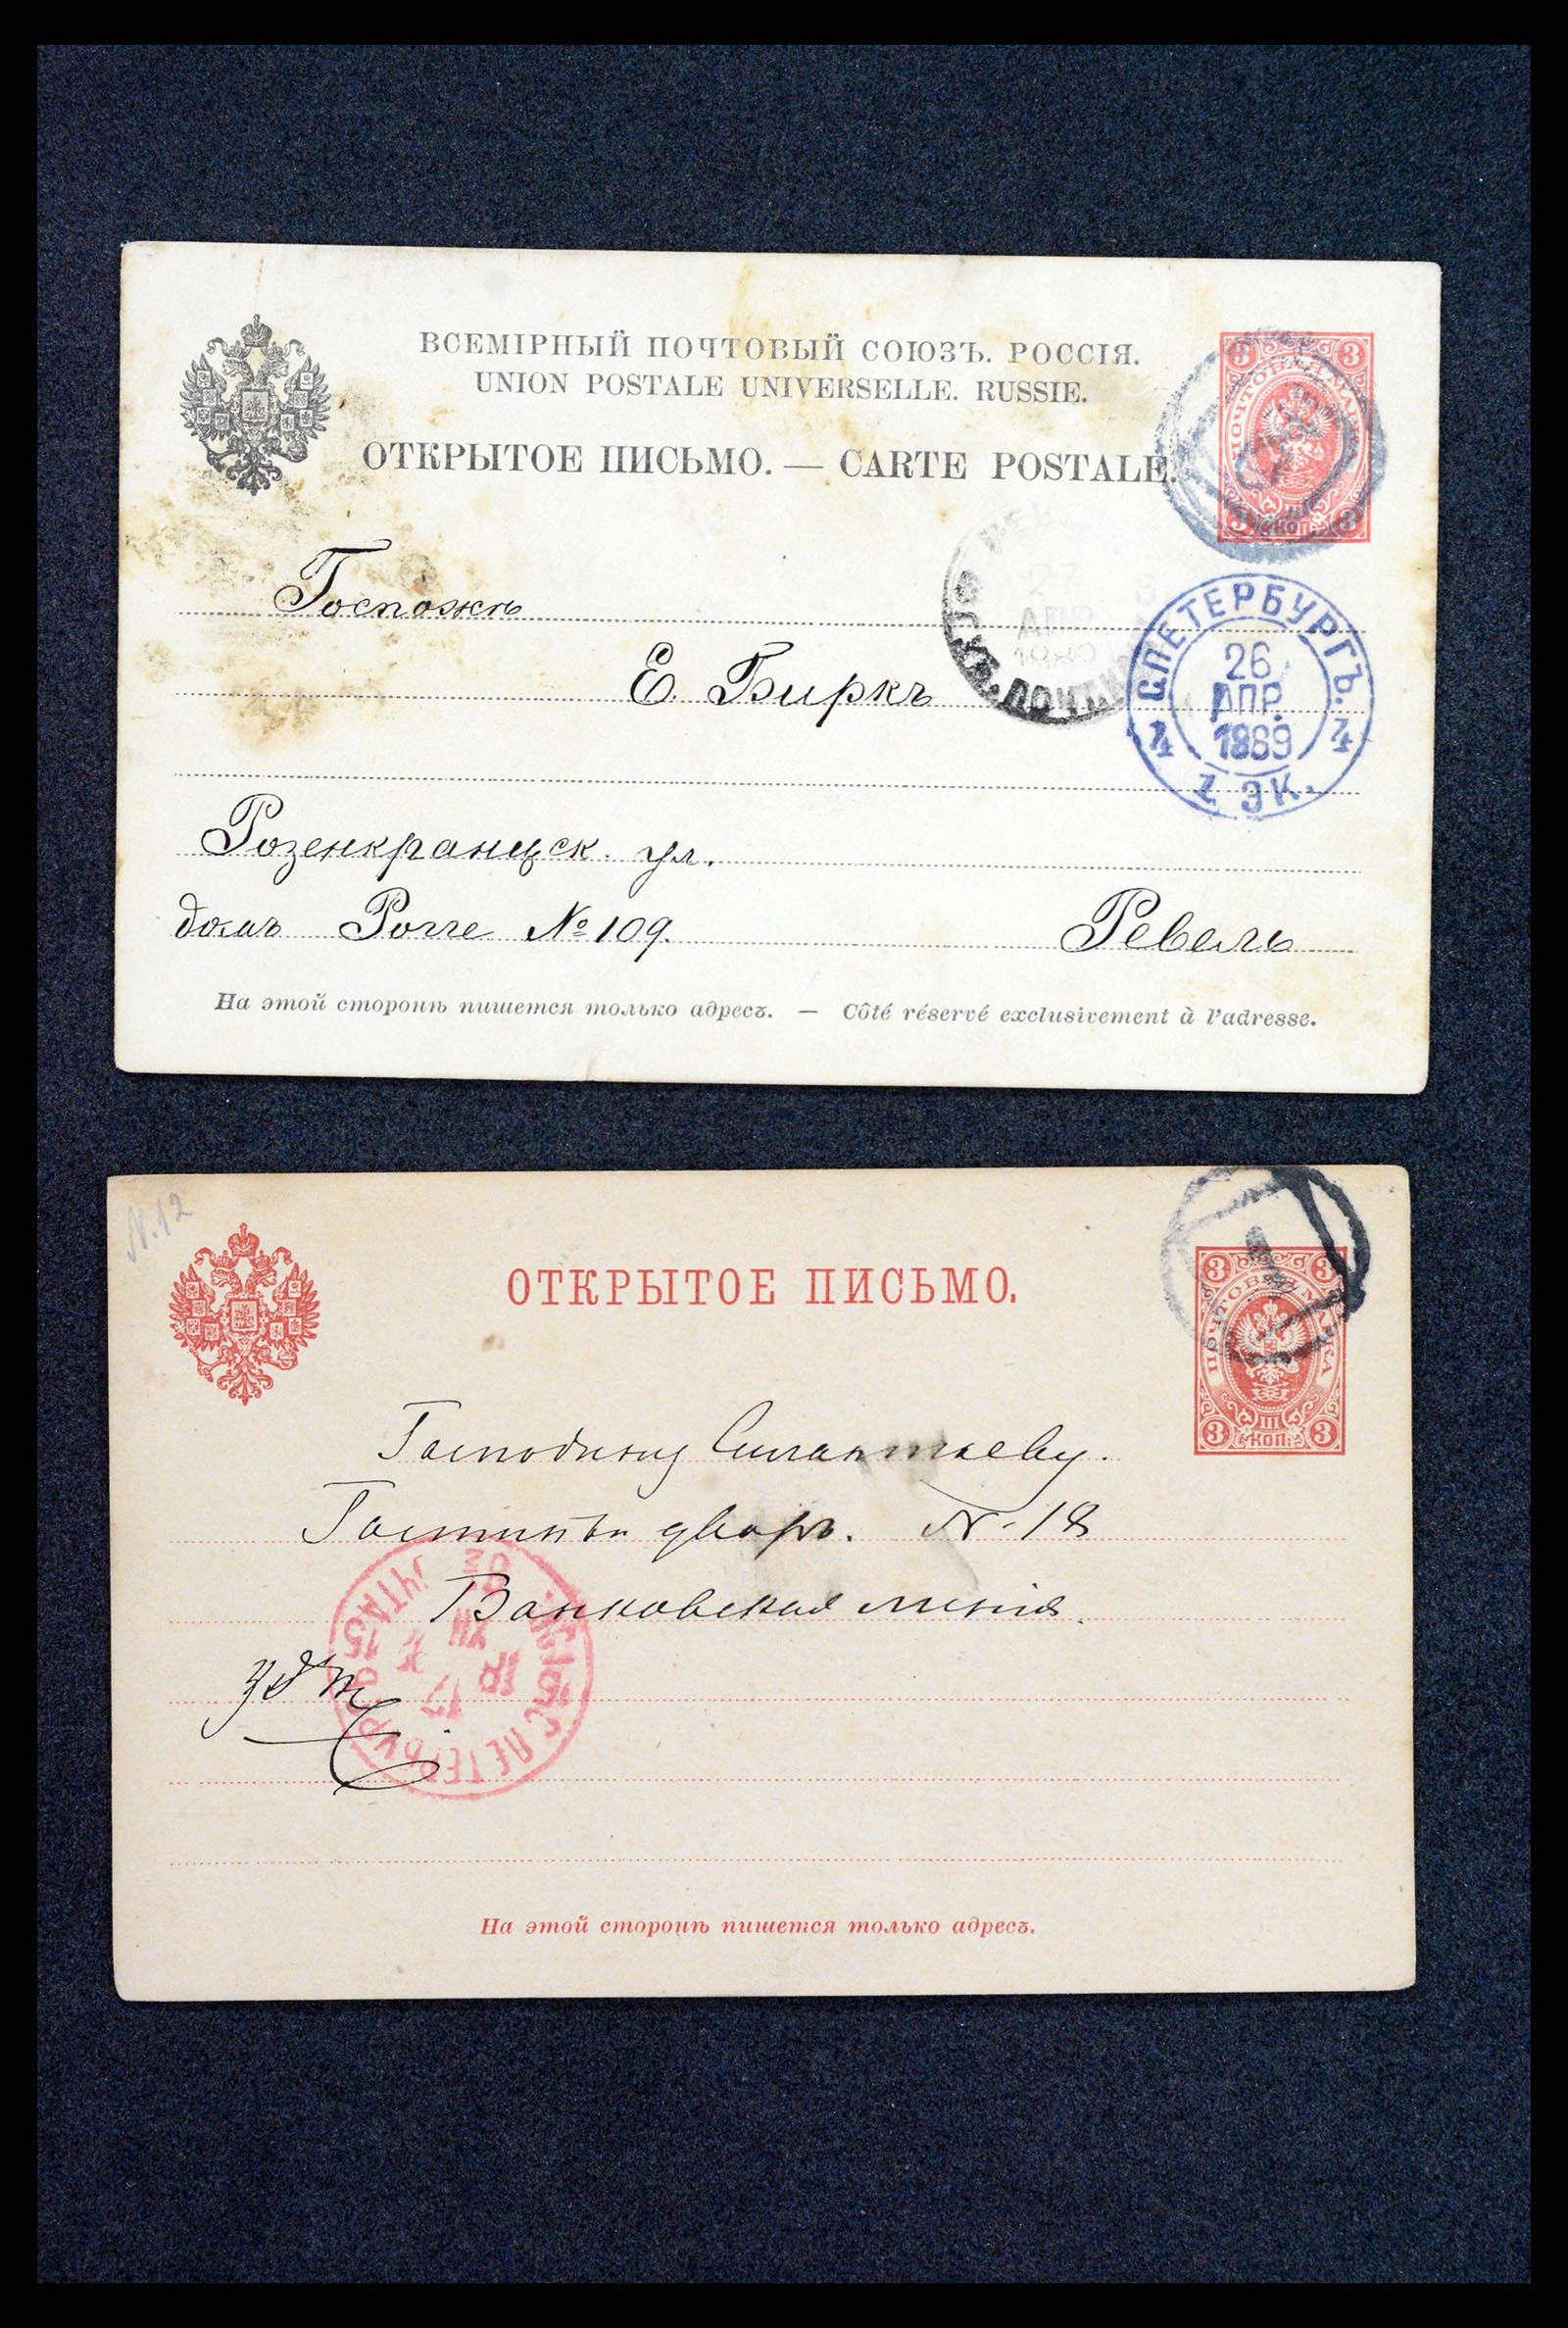 ВСЕМІРНЫЙ ПОЧТОВЫЙ СОЮЗЪ. РОССІЯ.
UNION POSTALE UNIVERSELLE. RUSSIE.
ОТКРЫТОЕ ПИСЬМО. — CARTE POSTALE.
3 3
ПОЧТОВАЯ МАРКА
III
КОП.
3 3
Госпожѣ
Е. Биркъ
АПР
ПОЧТ.
С.ПЕТЕРБУРГЪ.
26
АПР.
1889
4 4
1 ЭК.
Розенкранцск. ул.
домъ Рогге № 109.
Ревель
На этой сторонѣ пишется только адресъ. — Côté réservé exclusivement à l'adresse.
N. 12
ОТКРЫТОЕ ПИСЬМО.
1
3 3
ПОЧТОВАЯ МАРКА
III
3 КОП. 3
Господину Силантьеву.
Гостинъ дворъ. N-18
Банковская линія.
С ПЕТЕРБУРГ
17
На этой сторонѣ пишется только адресъ.